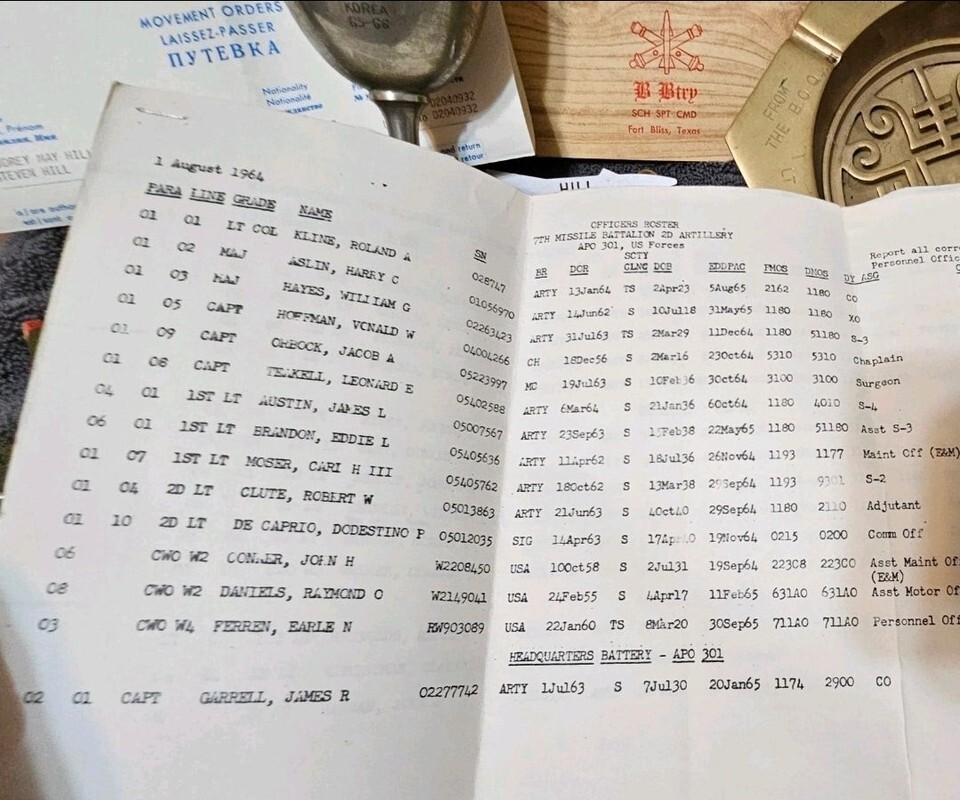 MOVEMENT ORDERS
LAISSEZ-PASSER
ПУТЕВКА
Nationality
Nationalité
Prénom
DREY MAY HILL
STEVEN HILL
02040932
02040932
and return
retour
KOREA
65-66
B Btry
SCH SPT CMD
Fort Bliss, Texas
FROM
THE B.O.Q.
HILL
1 August 1964
OFFICERS ROSTER
7TH MISSILE BATTALION 2D ARTILLERY
APO 301, US Forces
Report all corr
Personnel Offic
PARA LINE GRADE NAME SN BR DOR SCTY CLNC DOB EDDPAC PMOS DMOS DY ASG
01 01 LT COL KLINE, ROLAND A 028747 ARTY 13Jan64 TS 2Apr23 5Aug65 2162 1180 CO
01 02 MAJ ASLIN, HARRY C 01056970 ARTY 14Jun62 S 10Jul18 31May65 1180 1180 XO
01 03 MAJ HAYES, WILLIAM G 02263423 ARTY 31Jul63 TS 2Mar29 11Dec64 1180 51180 S-3
01 05 CAPT HOFFMAN, VONALD W 04004266 CH 18Dec56 S 2Mar16 23Oct64 5310 5310 Chaplain
01 09 CAPT ORBOCK, JACOB A 05223997 MC 19Jul63 S 10Feb36 3Oct64 3100 3100 Surgeon
01 08 CAPT TEAKELL, LEONARD E 05402588 ARTY 6Mar64 S 21Jan36 6Oct64 1180 4010 S-4
04 01 1ST LT AUSTIN, JAMES L 05007567 ARTY 23Sep63 S Feb38 22May65 1180 51180 Asst S-3
06 01 1ST LT BRANDON, EDDIE L 05405636 ARTY 11Apr62 S 18Jul36 26Nov64 1193 1177 Maint Off (E&M)
01 07 1ST LT MOSER, CARI H III 05405762 ARTY 18Oct62 S 13Mar38 29Sep64 1193 9301 S-2
01 04 2D LT CLUTE, ROBERT W 05013863 ARTY 21Jun63 S 4Oct40 29Sep64 1180 2110 Adjutant
01 10 2D LT DE CAPRIO, DODESTINO P 05012035 SIG 14Apr63 S 19Nov64 0215 0200 Comm Off
06 CWO W2 CONNER, JOHN H W2208450 USA 10Oct58 S 2Jul31 19Sep64 223C8 223C0 Asst Maint Of
(E&M)
08 CWO W2 DANIELS, RAYMOND O W2149041 USA 24Feb55 S 4Apr17 11Feb65 631A0 631A0 Asst Motor Of
03 CWO W4 FERREN, EARLE N RW903089 USA 22Jan60 TS 8Mar20 30Sep65 711A0 711A0 Personnel Off
HEADQUARTERS BATTERY - APO 301
02 01 CAPT GARRELL, JAMES R 02277742 ARTY 1Jul63 S 7Jul30 20Jan65 1174 2900 CO